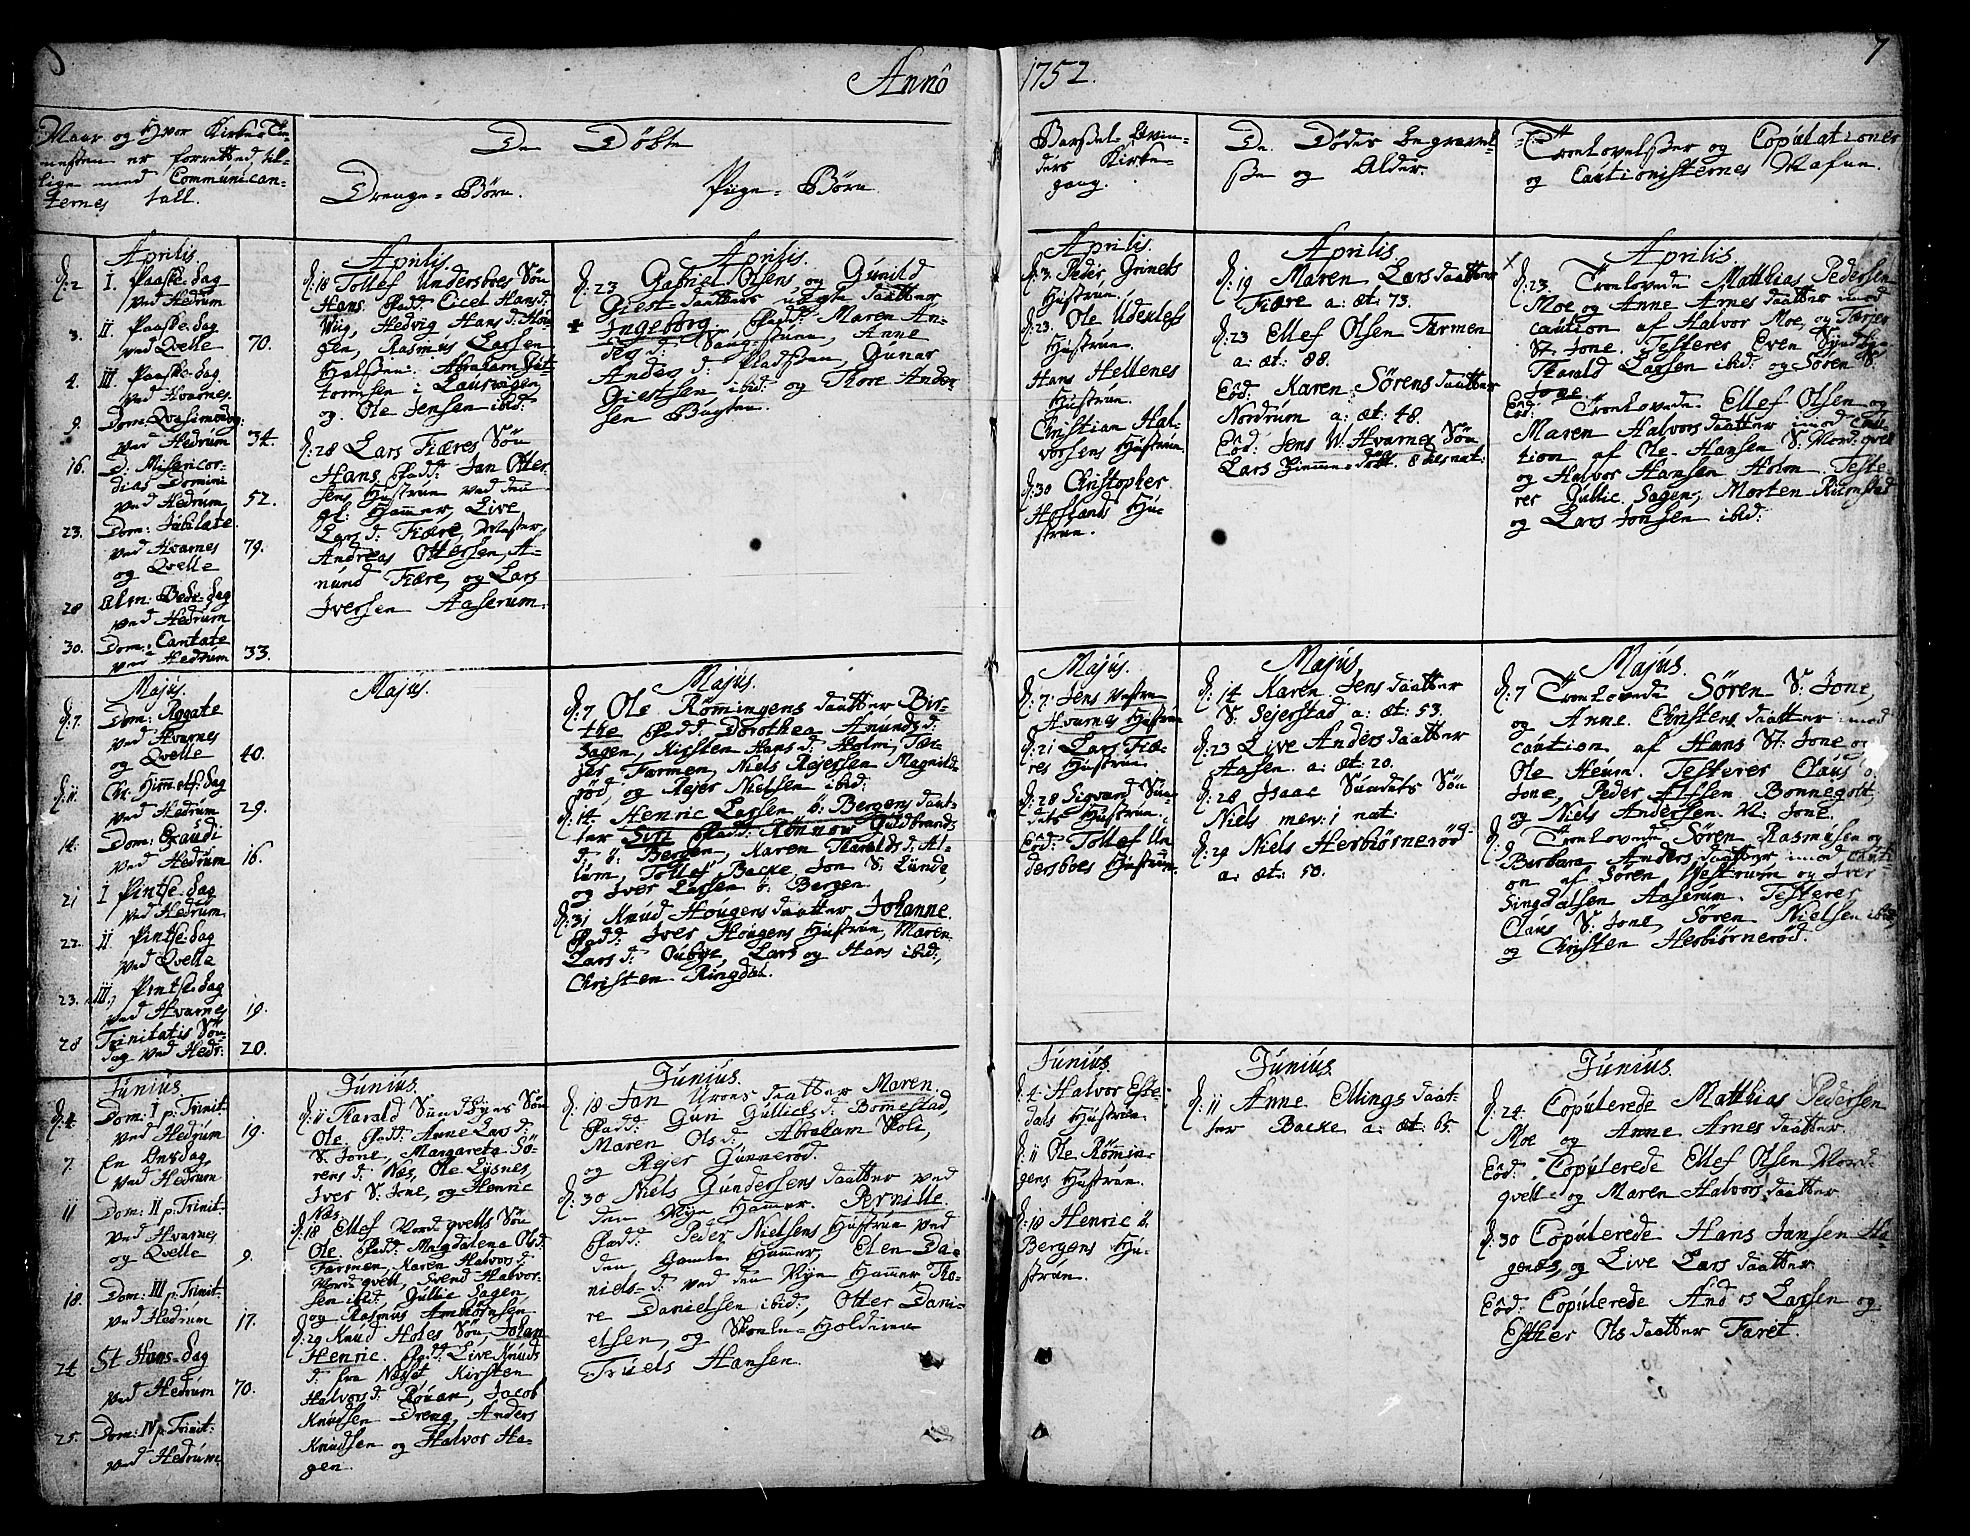 Anno 1752.
7
Naar og Hvor Kirke-Tie-
nesten er forretted til-
lige med Communican-
ternes tall.
De Døbte
Drenge-Børn.
Piige-Børn.
Barsel-Qvin-
ders Kirke-
gang.
De Dødes begravel-
se og Alder.
Troelovelser og Copulationer
og Cautionisternes Nafne.
Aprilis.
d: 2 I. Paaske-dag
ved Hedrum
3. II Paaske-dag
ved Qvelle 70.
4. III. Paaske-dag
ved Hvarnes.
9. Dom: Qvasimodog:
ved Hedrum 34.
16. D: Misericor-
dias Domini
ved Hedrum 52.
23. Dom: Jubilate
ved Hvarnes 79.
og Qvelle
28 Alm: Bede-dag
ved Hedrum
30. Dom: Cantate
ved Hedrum 33.
Aprilis.
d: 18 Tollef Undersboes Søn
Hans. Fadd: Cicel Hansd:
Viig, Hedvig Hans d: Hou-
gen, Rasmus Larsen
Halsen. Abraham
tormsen i Laurvigen
og Ole Jensen ibid:
d: 28 Lars Fiæres Søn
Hans. Fadd: Jan Otter-
sens Hustrue ved den
gl: Hammer, Live
Lars d: Fiære, Mester
Andreas Ottersen, A-
mund Fiære, og Lars
Iversen Aaserum.
Aprilis.
d: 23 Gabriel Olsens og Gunild
Giest daatters uægte daatter
+ Ingeborg. Fadd: Maren An-
ders d: Saugestuen, Anne
Anders d: Pladsen, Gunar
Giestsen, ibid: og Thore Ander-
sen Bugten.
Aprilis.
d: 3. Peder Grinets
Hustrue.
d: 23. Ole Uderless
Hustrue.
Hans Hellenes
Hustrue.
Christian Hal-
vorsens Hustrue
d: 30 Christopher
Hoslands Hu-
strue.
Aprilis.
d: 19 Maren Larsdaatter
Fiære a: æt: 73.
d: 23 Ellef Olsen Farmen
a: æt: 88.
Eod: Karen Sørensdaatter
Nordrum a: æt: 48.
Eod: Jens W. Hvarnes Søn
Lars 8 dies nat:
Aprilis.
x d: 23. Troelovede Matthias Pedersen
Moe og Anne Arnesdaatter imod
caution af Halvor Moe, og Torjer
St. Jone. Testerer Even Syndbye
Tharald Larsen ibid: og Søren S.
Jone
Eod: Troelovede Ellef Olsen og
Maren Halvorsdaatter imod Cau-
tion af Ole Hansen S: Mord-qvell
og Halvor Hansen Holm. Teste-
rer Gullic Sagen, Morten Rumstad
og Lars Jonsen ibid:
Majus.
d: 7. Dom: Rogate
ved Hvarnes
og Qvelle 40.
d: 11. Chr: Himmelf: dag
ved Hedrum 29.
14. Dom: Exaudi
ved Hedrum 16.
21 I Pintse-dag
ved Hedrum
22. II. Pintse-dag
ved Qvelle
23. III, Pintse-dag
ved Hvarnes 19.
28 Trinitatis Søn-
dag ved Hedr: 20.
Majus.
Majus.
d: 7 Ole Rømingens daatter Bir-
the Fadd: Dorothea Amunds d:
Sagen, Kirsten Hans d: Holm, Tær-
jer Farmen, Niels Rejersen Magnild-
rød, og Rejer Nielsen ibid:
d: 14 Henric Larsen ö: Bergens daat-
ter Siri Fadd: Rønnov Guldbrands
d: ö: Bergen, Karen Tharalds d: Al-
lum, Tollef Backe, Jon S: Lunde,
og Iver Larsen ö: Bergen.
d: 31 Knud Hougens daatter Johanne.
Fadd: Iver Hougens Hustrue, Maren
Lars d: Oubye, Lars og Hans ibid:,
Christen Ringdal.
Majus.
d: 7. Jens Vestre
Hvarnes Hustrue
d: 21 Lars Fiæ-
res Hustrue
d: 28 Sigvard Sun-
dets Hustrue
Eod: Tollef Un-
dersboes Hustrue.
Majus.
d: 14 Karen Jensdaatter
S: Sejerstad a: æt: 53.
d: 23 Live Andersdaatter
Aasen a: æt: 20.
d: 28 Isaac Sundets Søn
Niels mev: 1 nat.
d: 29 Niels Herbiørnerød
a: æt: 50.
Majus.
d: 7 Troelovede Søren S: Jone,
og Anne Christensdaatter imod
caution af Hans St: Jone og
Ole Heum. Testerer Claus ö:
Jone, Peder Bonnegolt
og Niels Andersen N: Jone.
d: 9 Troelovede Søren Rasmusen og
Barbara Andersdaatter imod Cauti-
on af Søren Vestrum og Iver
Singdalsen Aaserum. Testerer
Claus S: Jone, Søren Nielsen ibid,
og Christen Herbiørnerød.
Junius
d: 4 Dom: I p: Trinit:
ved Hedrum 19.
7. En Onsdag
ved Hedrum
11 Dom: II p: Trinit:
ved Hvarnes
og Qvelle 9.
18. Dom: III p: Trinit:
ved Hedrum 17.
24 St Hans-dag
ved Hedrum 70.
25. Dom: IV p: Trinit:
ved Hedrum
Junius.
d: 11 Tharald Sundbyes Søn
Ole. Fadd: Anne Lars d:
S: Jone, Margareta Sö-
rens d: Næs, Ole Lysnes,
Iver S: Jone, og Henric
Næs.
d: 18 Ellef Nord-qvells Søn
Ole. Fadd: Magdalena Ols d:
Farmen, Karen Halvors d:
Nord-qvell, Svend Halvor-
sen ibid: Gullic Sagen
og Rasmus Ambiørnsen
d: 29 Knud Holes Søn, Johan
Henric. Fadd: Live Knuds
d: fra Næsset, Kirsten
Halvors d: Rouar, Jacob
Knudsen Dreng, Anders
Knudsen og Halvor Ha-
gen.
Junius.
d: 18 Jan Urønsdaatter Maren.
Fadd: Guri Gullics d: Bommestad,
Maren Ols d:, Abraham Skoli,
og Rejer Gunnerød.
d: 30 Niels Gundersens daatter ved
den Nye Hammer. Pernille.
Fadd: Peder Nielsens Hustrue ved
den Gamle Hammer, Elen Da-
niels-d: ved den Nye Hammer Tho-
re Danielsen ibid:, Otter Dani-
elsen, og Skoele-Holderen
Truels Hansen.
Junius.
d: 4 Halvor Efte-
dals Hustrue
d: 11 Ole Rømin-
gens Hustrue.
d: 18 Henric ö:
Bergens Hu-
strue.
Junius.
d: 11 Anne Ellingsdaat-
ter Backe a: æt: 65.
Junius.
d: 24. Copulerede Matthias Pedersen
Moe og Anne Arnesdaatter
Eod: Copulerede Ellef Olsen Nord-
qvell og Maren Halvorsdaatter
d: 30 Copulerede Hans Jansen Ha-
genes, og Live Larsdaatter
Eod: Copulerede And Larsen og
Esther Olsdaatter Faret.